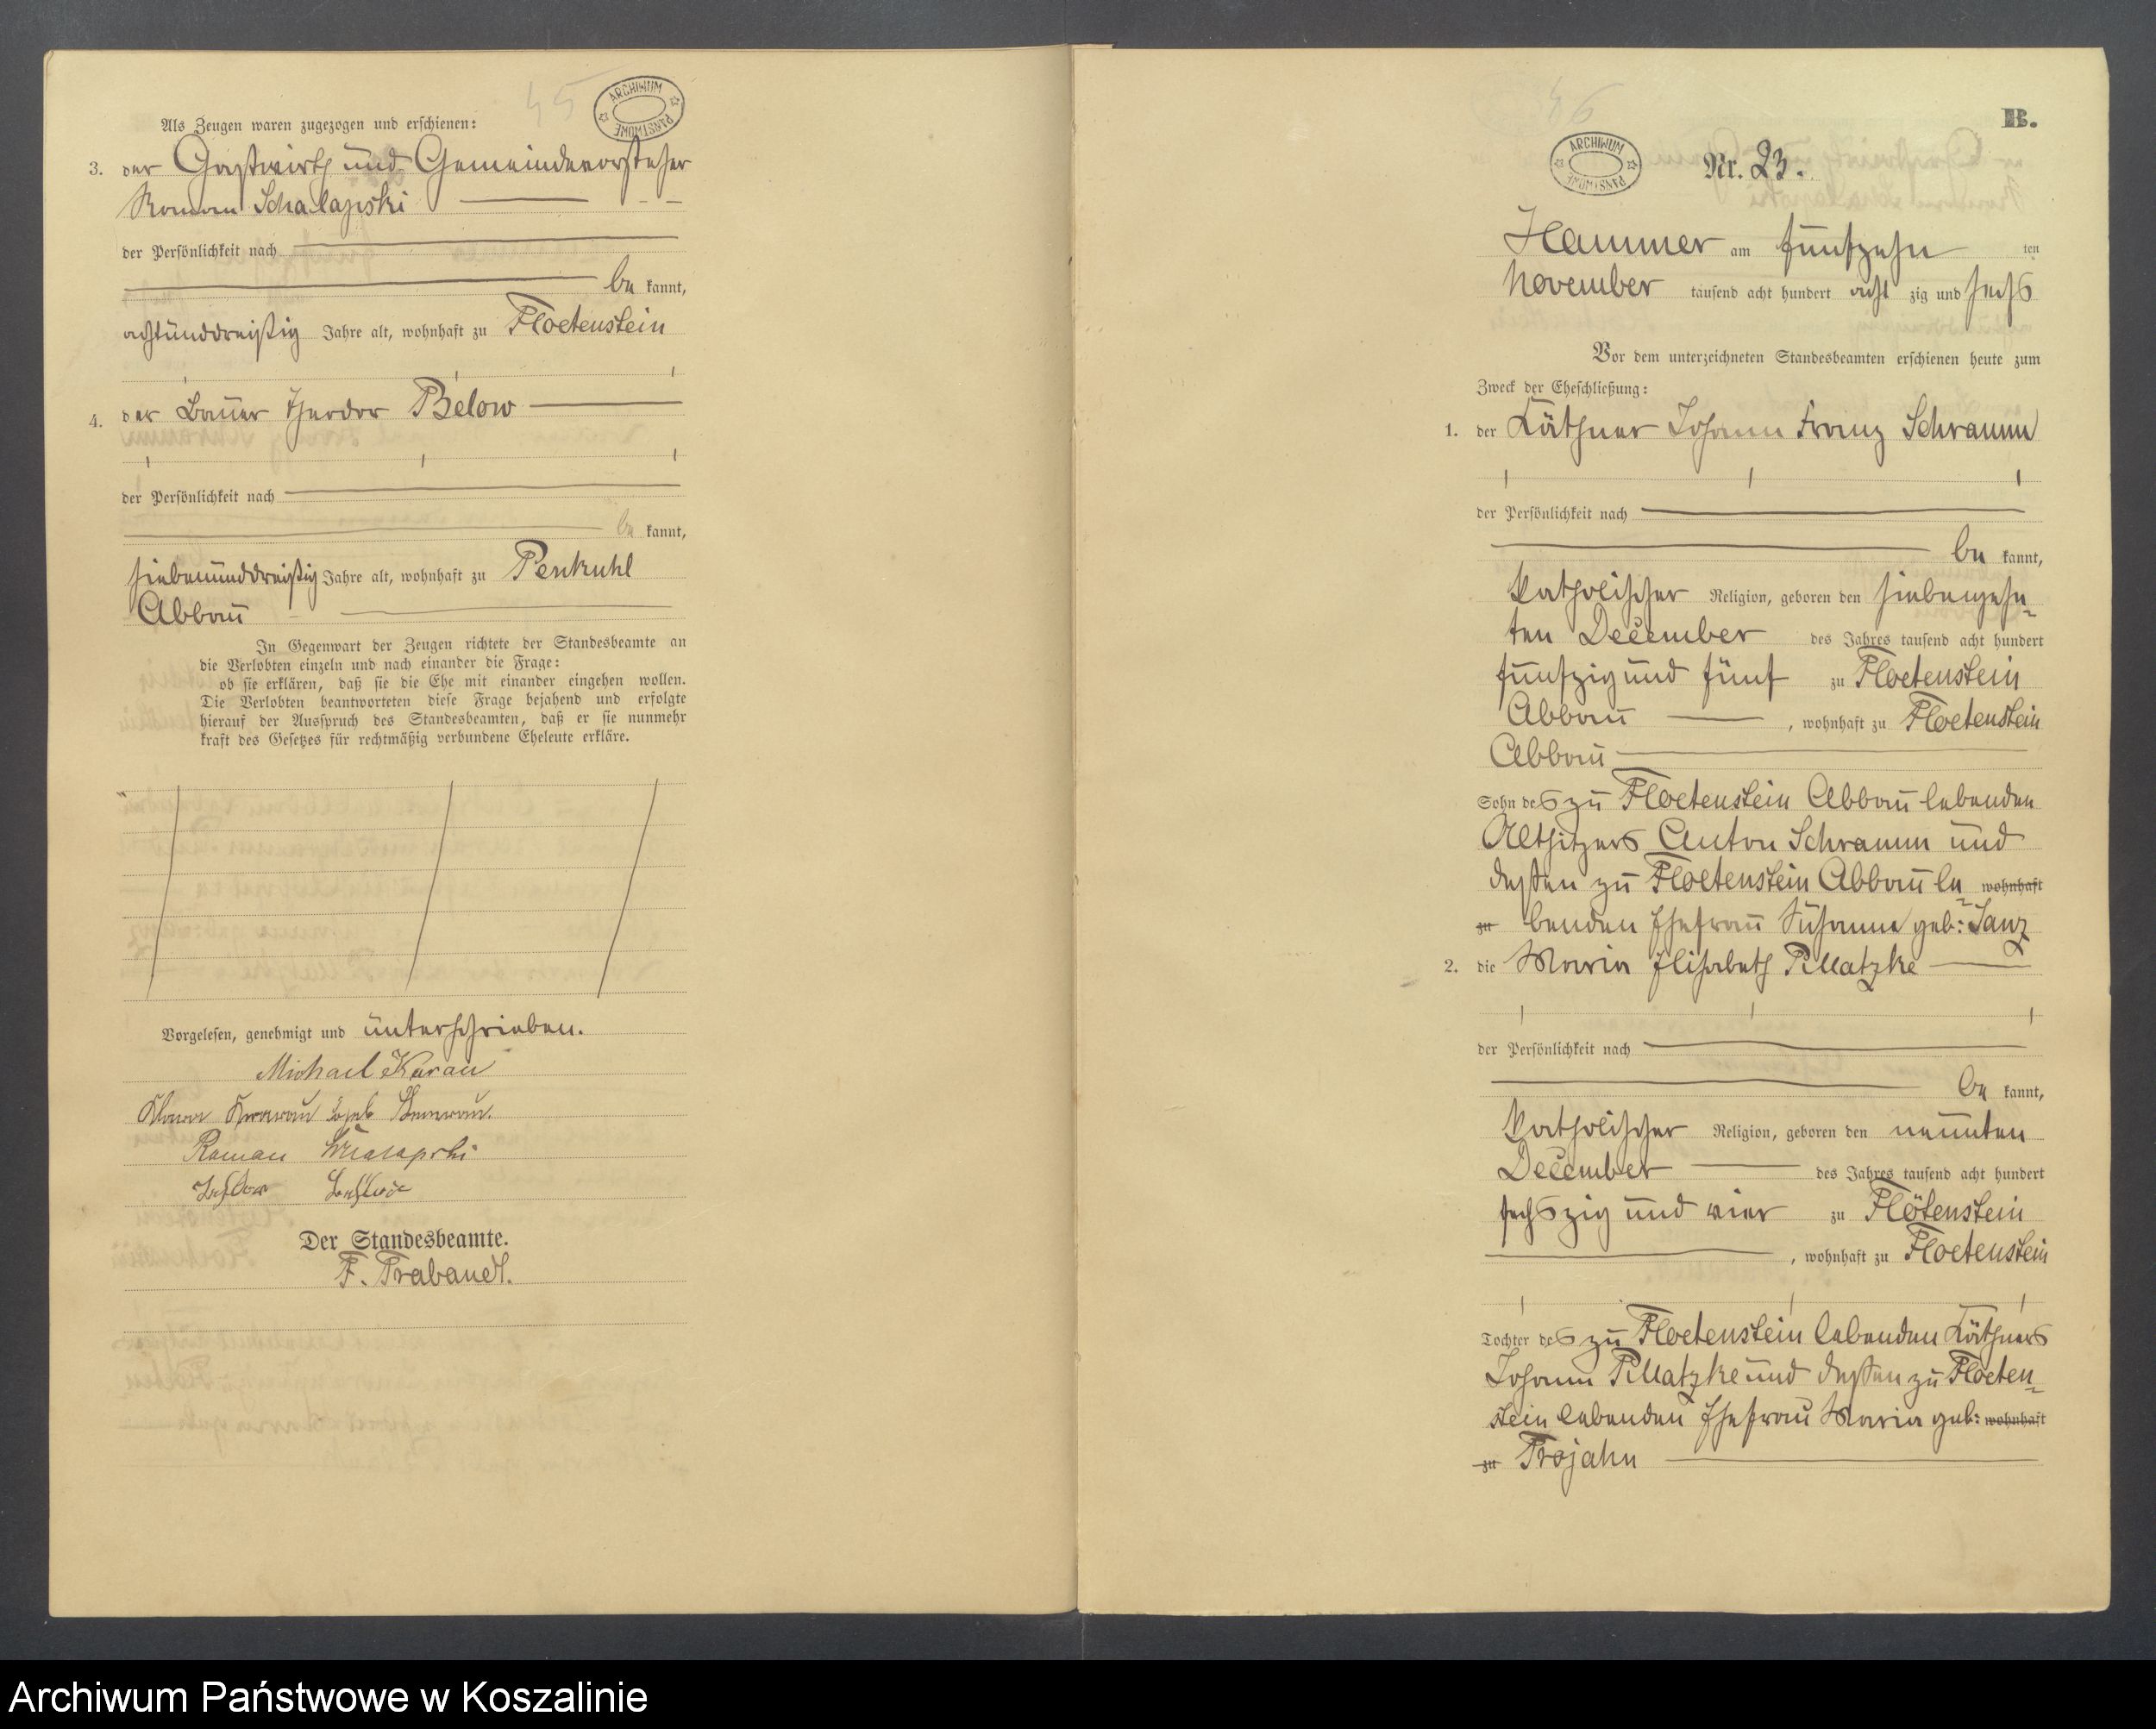 45
ARCHIWUM PAŃSTWOWE
Als Zeugen waren zugezogen und erschienen:
3. der Gastwirth und Gemeindevorsteher
Roman Schalapski
der Persönlichkeit nach
be kannt,
achtunddreißig Jahre alt, wohnhaft zu Floetenstein
4. der Bauer Theodor Below
der Persönlichkeit nach
be kannt,
siebenunddreißig Jahre alt, wohnhaft zu Penkuhl
Abbau
In Gegenwart der Zeugen richtete der Standesbeamte an
die Verlobten einzeln und nach einander die Frage:
ob sie erklären, daß sie die Ehe mit einander eingehen wollen.
Die Verlobten beantworteten diese Frage bejahend und erfolgte
hierauf der Ausspruch des Standesbeamten, daß er sie nunmehr
kraft des Gesetzes für rechtmäßig verbundene Eheleute erkläre.
Vorgelesen, genehmigt und unterschrieben.
Michael
Roman
Der Standesbeamte.
F. Trabandt.
46
B.
ARCHIWUM PAŃSTWOWE
Nr. 23.
Hammer am fünfzehn ten
November tausend acht hundert acht zig und sechs
Vor dem unterzeichneten Standesbeamten erschienen heute zum
Zweck der Eheschließung:
1. der Käthner Johann Franz Schramm
der Persönlichkeit nach
be kannt,
katholischer Religion, geboren den siebenzehn-
ten December des Jahres tausend acht hundert
fünfzig und fünf zu Floetenstein
Abbau , wohnhaft zu Floetenstein
Abbau
Sohn des zu Floetenstein Abbau lebenden
Altsitzers Anton Schramm und
dessen zu Floetenstein Abbau le- wohnhaft
zu benden Ehefrau Susanna geb: Janz
2. die Maria Elisabeth Pillatzke
der Persönlichkeit nach
be kannt,
katholischer Religion, geboren den neunten
December des Jahres tausend acht hundert
sechszig und vier zu Flötenstein
, wohnhaft zu Floetenstein
Tochter des zu Floetenstein lebenden Käthners
Johann Pillatzke und dessen zu Floeten-
stein lebenden Ehefrau Maria geb: wohnhaft
zu Trojahn
Archiwum Państwowe w Koszalinie